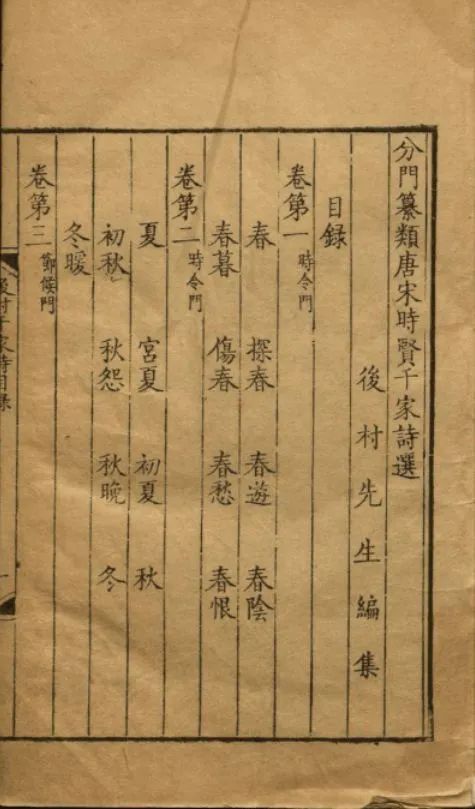 分門纂類唐宋時賢千家詩選
後村先生編集
目録
卷第一 時令門
春 探春 春遊 春陰
春暮 傷春 春愁 春恨
卷第二 時令門
夏 宮夏 初夏 秋
初秋 秋怨 秋晚 冬
冬暖
卷第三 節候門
後村千家詩目録